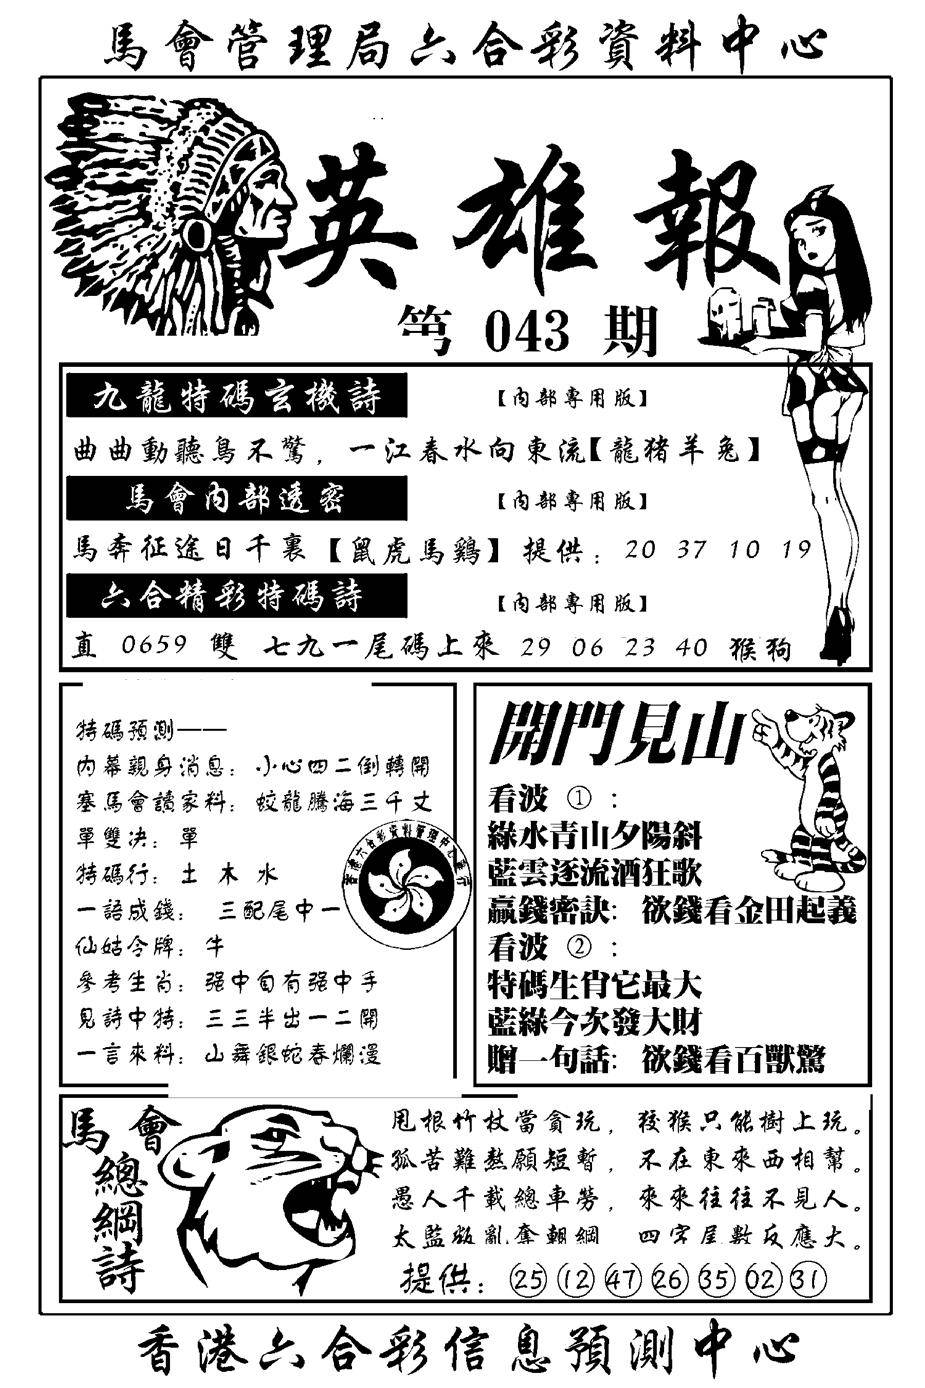 馬會管理局六合彩資料中心
英雄報
第 043 期
九龍特碼玄機詩 【內部專用版】
曲曲動聽鳥不驚，一江春水向東流【龍猪羊兔】
馬會內部透密 【內部專用版】
馬奔征途日千裏【鼠虎馬鷄】提供：20 37 10 19
六合精彩特碼詩 【內部專用版】
直 0659 雙 七九一尾碼上來 29 06 23 40 猴狗
特碼預測——
內幕親身消息：小心四二倒轉開
塞馬會讀家料：蛟龍騰海三千丈
單雙决：單
特碼行：土 木 水
一語成錢： 三配尾中一
仙姑令牌：牛
參考生肖：强中自有强中手
見詩中特：三三半出一二開
一言來料：山舞銀蛇春爛漫
香港六合彩資料管理中心發行
開門見山
看波 ①：
綠水青山夕陽斜
藍雲逐流酒狂歌
贏錢密訣：欲錢看金田起義
看波 ②：
特碼生肖它最大
藍綠今次發大財
贈一句話：欲錢看百獸驚
馬會總綱詩
甩根竹杖當貪玩，狡猴只能樹上玩。
孤苦難熬願短暫，不在東來西相幫。
愚人千載總車勞，來來往往不見人。
太監叛亂奪朝綱 四字尾數反應大。
提供：25 12 47 26 35 02 31
香港六合彩信息預測中心